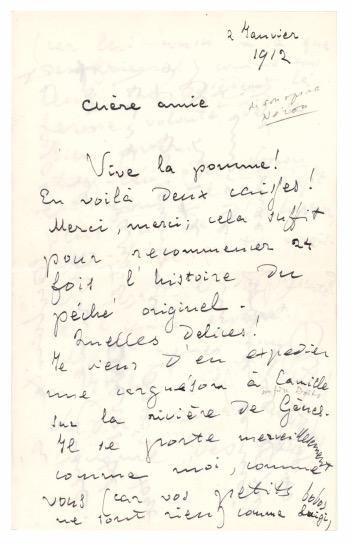 2 Janvier
1912
Chère amie
Néron
Vive la pomme!
En voilà deux caisses!
Merci, merci; cela suffit
pour recommencer 24
fois l'histoire du
péché originel.
Quelles délices!
Je viens d'en expedier
une cargaison à Camille
sur la rivière de Gênes.
Il se porte merveilleusement
comme moi, comme
vous (car vos petits bobos
ne sont rien) comme Luigi,